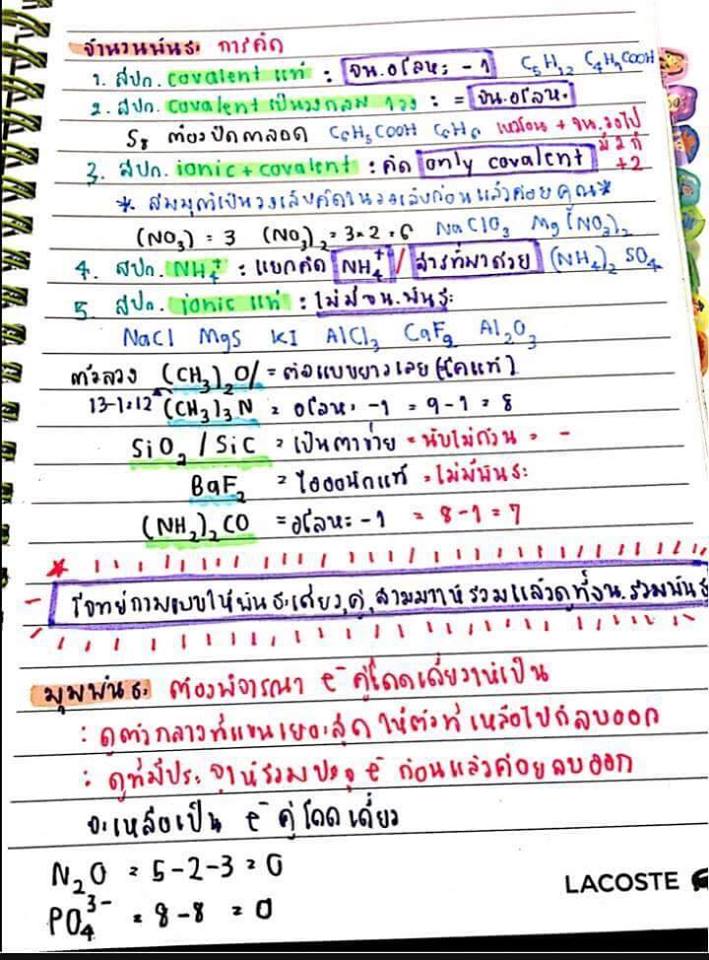 จำนวนพันธะ การคิด
1. สปก. covalent แท้ : จน.อโลหะ - 1 C₅H₁₂ C₄H₉COOH
2. สปก. covalent เป็นวงกลม 1 วง : = จน.อโลหะ
S₈ ต้องปิดตลอด C₆H₅COOH C₆H₆ เหมือน + จน.วงไป
มี 2 ก็ +2
3. สปก. ionic + covalent : คิด only covalent
* สมมุติเป็นวงเล็บคิดในวงเล็บก่อนแล้วค่อยคูณ *
(NO₃) = 3 (NO₃)₂ = 3×2 = 6 NaClO₃ Mg(NO₃)₂
4. สปก. NH₄⁺ : แยกคิด NH₄⁺ / สารที่มาด้วย (NH₄)₂ SO₄
5. สปก. ionic แท้ : ไม่มีจน.พันธะ
NaCl MgS KI AlCl₃ CaF₂ Al₂O₃
ตัวลวง (CH₃)₂O/ = ต่อแบบยาวเลย (โคแท้)
13-1=12 (CH₃)₃N = อโลหะ -1 = 9-1 = 8
SiO₂ / SiC = เป็นตาข่าย = นับไม่ถ้วน = -
BaF₂ = ไอออนิกแท้ = ไม่มีพันธะ
(NH₂)₂CO = อโลหะ -1 = 8-1 = 7
โจทย์ถามแบบให้พันธะเดี่ยว, คู่, สามมาให้รวมแล้วดูที่จน.รวมพันธะ
มุมพันธะ ต้องพิจารณา e⁻ คู่โดดเดี่ยวให้เป็น
: ดูตัวกลางที่แขนเยอะสุด ให้ตัวที่เหลือไปลบออก
: ดูที่มีประจุให้รวมประจุ e⁻ ก่อนแล้วค่อยลบออก
จะเหลือเป็น e⁻ คู่โดดเดี่ยว
N₂O = 5-2-3 = 0
PO₄³⁻ = 8-8 = 0
LACOSTE